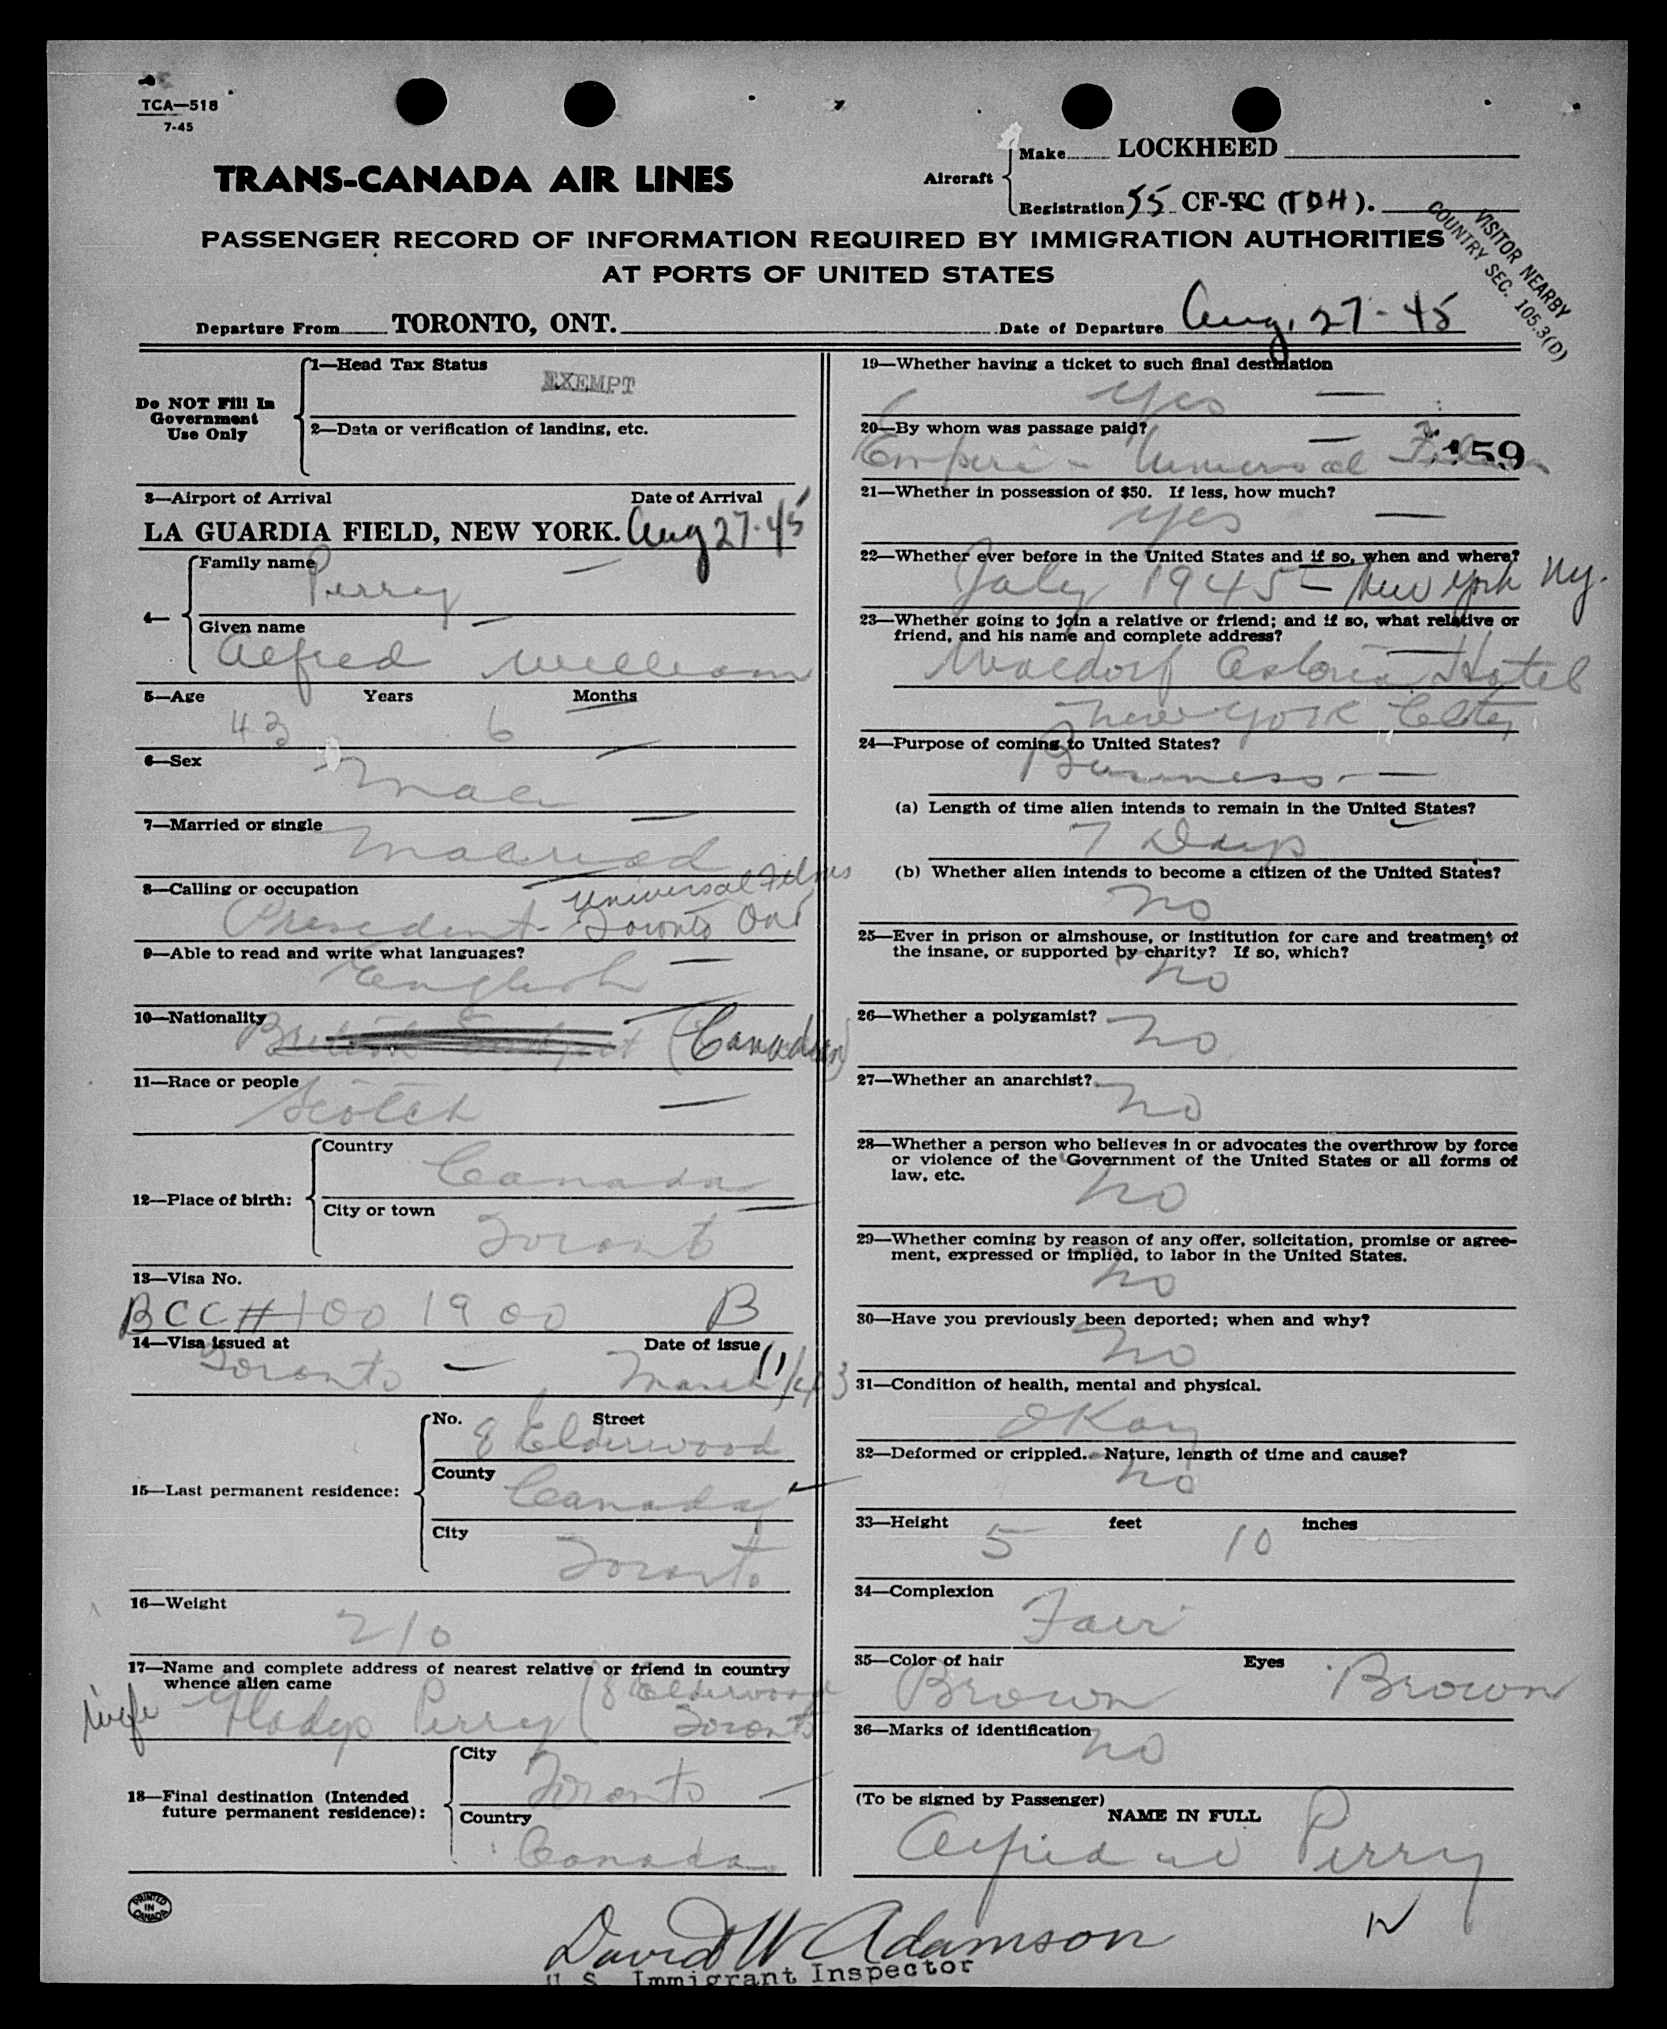 TCA—518
7-45
TRANS-CANADA AIR LINES
Aircraft
Make LOCKHEED
Registration 55 CF-TC (TDH).
PASSENGER RECORD OF INFORMATION REQUIRED BY IMMIGRATION AUTHORITIES
AT PORTS OF UNITED STATES
VISITOR NEARBY
COUNTRY SEC. 105.3(D)
Departure From TORONTO, ONT.
Date of Departure Aug. 27-45
Do NOT Fill In
Government
Use Only
1—Head Tax Status
EXEMPT
2—Data or verification of landing, etc.
3—Airport of Arrival Date of Arrival
LA GUARDIA FIELD, NEW YORK. Aug 27-45
4—
Family name
Perry
Given name
Alfred William
5—Age Years Months
43 6
6—Sex
Male
7—Married or single
Married
8—Calling or occupation
Universal Films
President - Toronto Ont
9—Able to read and write what languages?
English
10—Nationality
British Subject (Canadian)
11—Race or people
Scotch
12—Place of birth:
Country
Canada
City or town
Toronto
13—Visa No.
BCC# 1001900 B
14—Visa issued at Date of issue
Toronto — March 11/43
15—Last permanent residence:
No. Street
8 Elderwood
County
Canada
City
Toronto
16—Weight
210
17—Name and complete address of nearest relative or friend in country
whence alien came
wife Gladys Perry (8 Elderwood
Toronto
18—Final destination (Intended
future permanent residence):
City
Toronto
Country
Canada
PRINTED
IN
CANADA
19—Whether having a ticket to such final destination
Yes —
20—By whom was passage paid?
Empire - Universal Films
159
21—Whether in possession of $50. If less, how much?
Yes —
22—Whether ever before in the United States and if so, when and where?
July 1945 - New York Ny.
23—Whether going to join a relative or friend; and if so, what relative or
friend, and his name and complete address?
Waldorf Astoria Hotel
New York City
24—Purpose of coming to United States?
Business —
(a) Length of time alien intends to remain in the United States?
7 Days
(b) Whether alien intends to become a citizen of the United States?
No
25—Ever in prison or almshouse, or institution for care and treatment of
the insane, or supported by charity? If so, which?
No
26—Whether a polygamist?
No
27—Whether an anarchist?
No
28—Whether a person who believes in or advocates the overthrow by force
or violence of the Government of the United States or all forms of
law, etc.
No
29—Whether coming by reason of any offer, solicitation, promise or agree-
ment, expressed or implied, to labor in the United States.
No
30—Have you previously been deported; when and why?
No
31—Condition of health, mental and physical.
OKay
32—Deformed or crippled. Nature, length of time and cause?
No
33—Height 5 feet 10 inches
34—Complexion
Fair
35—Color of hair Eyes
Brown Brown
36—Marks of identification
No
(To be signed by Passenger)
NAME IN FULL
Alfred W Perry
David W Adamson
U.S. Immigrant Inspector